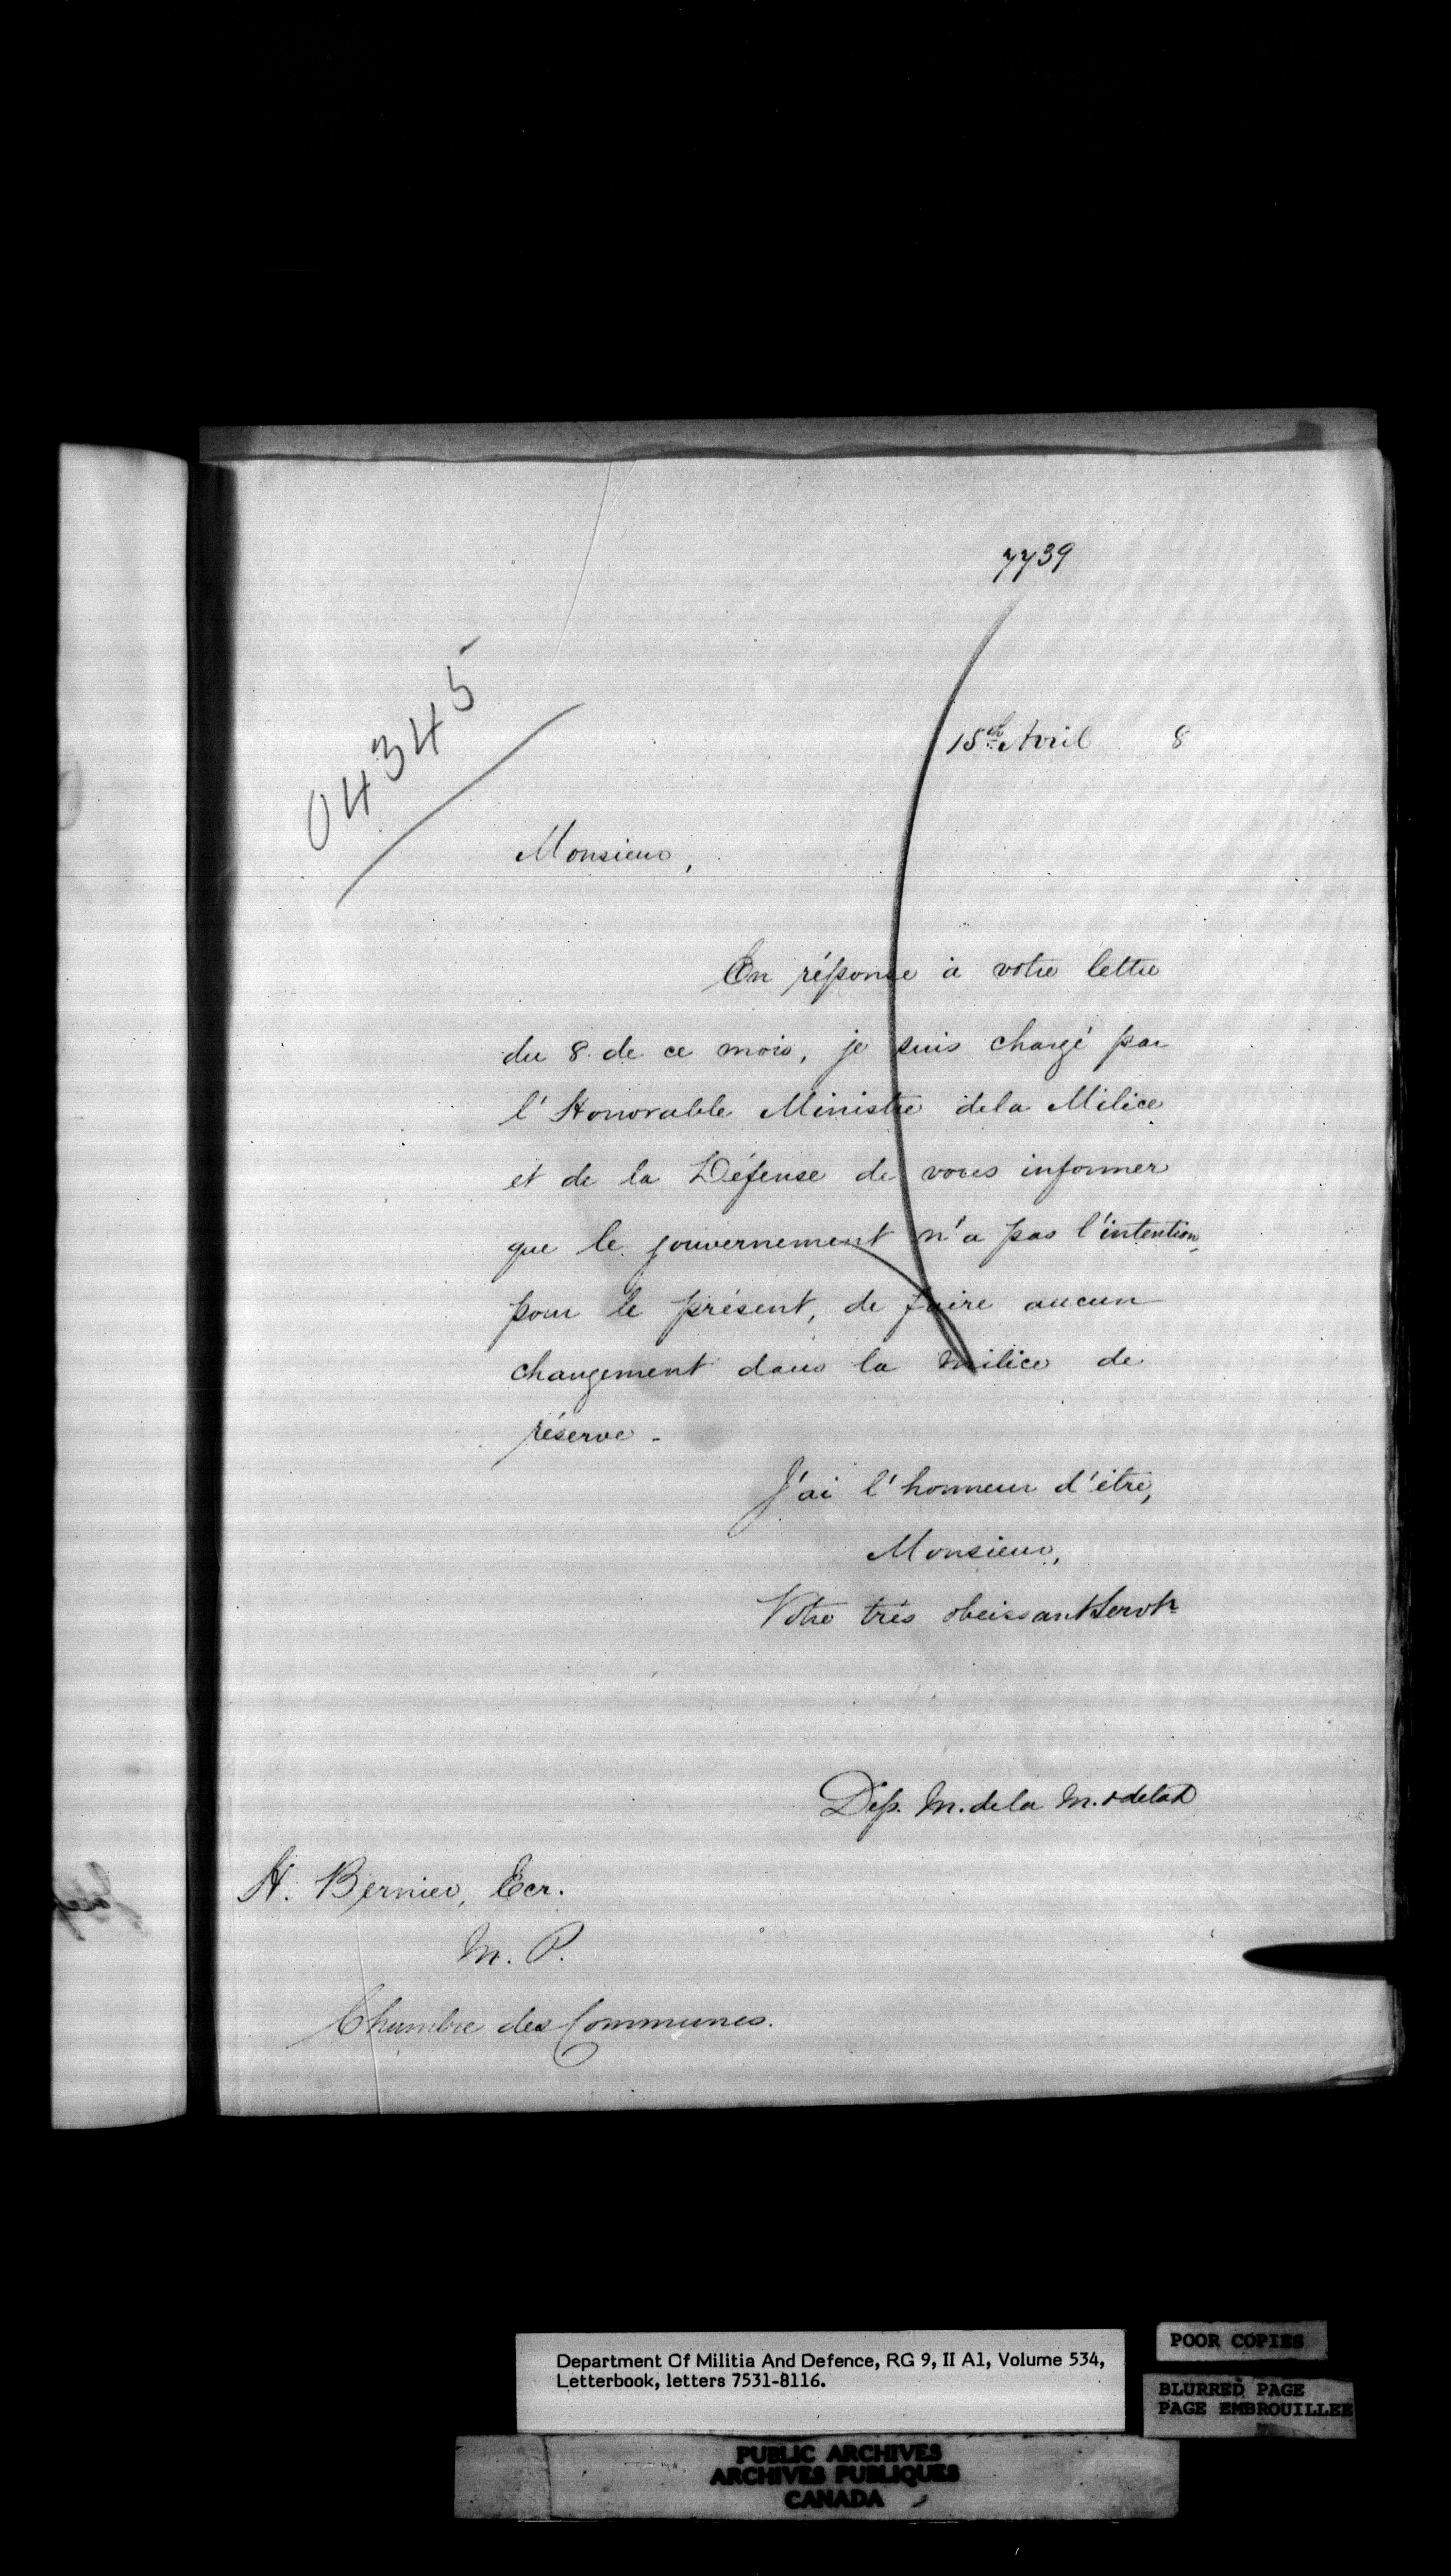 7739
04345
15th Avril 8
Monsieur,
En réponse à votre lettre
du 8 de ce mois, je suis chargé par
l'Honorable Ministre de la Milice
et de la Défense de vous informer
que le gouvernement n'a pas l'intention,
pour le présent, de faire aucun
changement dans la milice de
réserve -
J'ai l'honneur d'être,
Monsieur,
Votre très obeissant Servtr
Dep. M. de la M. & de la D
H. Bernier, Ecr.
M. P.
Chambre des Communes.
Department Of Militia And Defence, RG 9, II A1, Volume 534,
Letterbook, letters 7531-8116.
POOR COPIES
BLURRED PAGE
PAGE EMBROUILLEE
PUBLIC ARCHIVES
ARCHIVES PUBLIQUES
CANADA